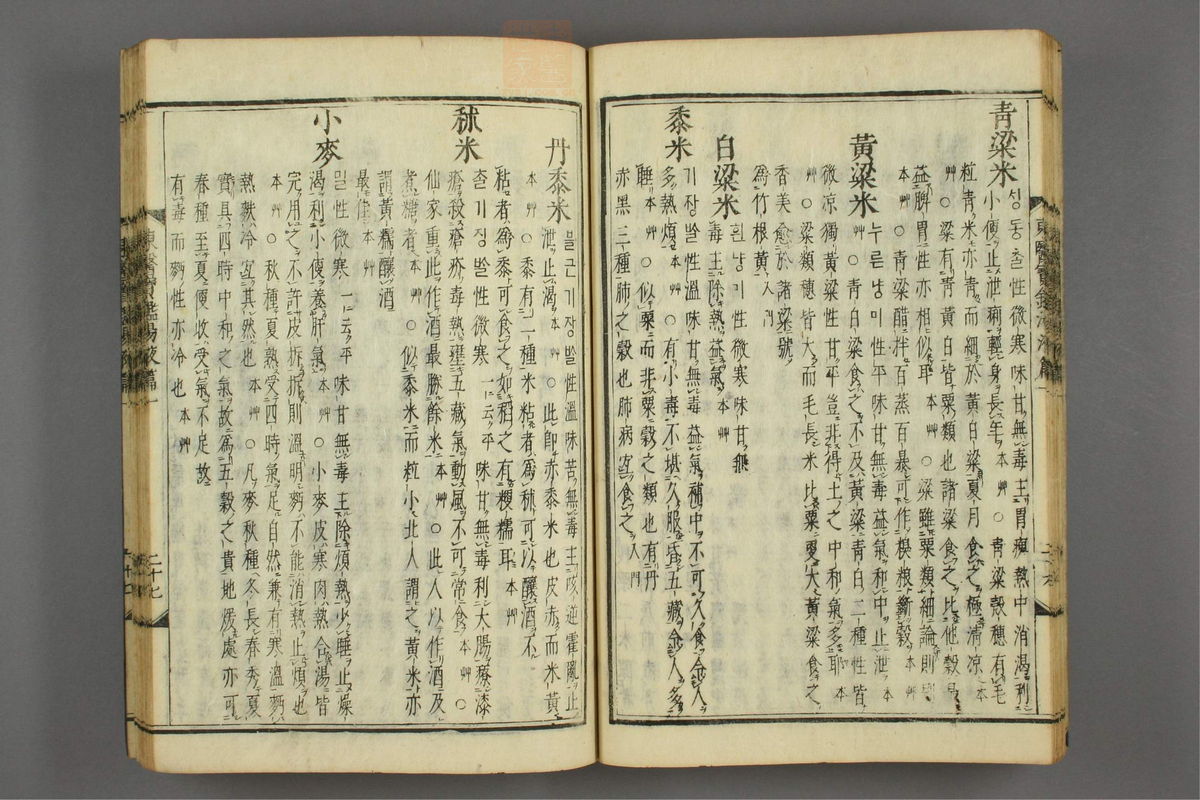 青粱米 싱동츌 性微寒味甘無毒主胃痺熱中消渴利
小便止泄痢輕身長年 本艸 ○青粱殼穗有毛
粒青米亦青而細於黃白粱夏月食之極淸凉 本
艸 ○粱有青黃白皆粟類也諸粱食之比他穀
益脾胃性亦相似耳 本艸 ○粱雖粟類細論則別
本艸 ○青粱醋拌百蒸百暴可作糗粮斷穀 本艸
黃粱米 누른냥미 性平味甘無毒益氣和中止泄 本
艸 ○青白粱食之不及黃粱青白二種性皆
微凉獨黃粱性甘平豈非得土之中和氣多耶 本
艸 ○粱類穗皆大而毛長米比粟更大黃粱食之
香美愈於諸粱號
爲竹根黃 入門
白粱米 흰냥미 性微寒味甘無
毒主除熱益氣 本艸
黍米 기장ᄡᆞᆯ 性溫味甘無毒益氣補中不可久食令人
多熱煩 本艸 ○有小毒不堪久服昏五藏令人多
睡 本艸 ○似粟而非粟穀之類也有丹
赤黑三種肺之穀也肺病宜食之 入門
丹黍米 블근기장ᄡᆞᆯ 性溫味苦無毒主咳逆霍亂止
泄止渴 本艸 ○此卽赤黍米也皮赤而米黃
本艸 ○有一種米粘者爲秫可以釀酒不
粘者爲黍可食之如稻之有粳糯耳 本艸
秫米 츌기장ᄡᆞᆯ 性微寒 一云平 味甘無毒利大腸療漆
瘡殺瘡疥毒熱壅五藏氣動風不可常食 本艸 ○
仙家重此作酒最勝餘米 本艸 ○此人以作酒及
煮糖者 本艸 ○似黍米而粒小北人謂之黃米亦
謂黃糯釀酒
最佳 本艸
小麥 밀 性微寒 一云平 味甘無毒主除煩熱少睡止燥
渴利小便養肝氣 本艸 ○小麥皮寒肉熱合湯皆
完用之不許皮拆拆則溫明麪不能消熱止煩也
本艸 ○秋種夏熟受四時氣足自然兼有寒溫麪
熱麩冷宜其然也 本艸 ○凡麥秋種冬長春秀夏
實具四時中和之氣故爲五穀之貴地煖處亦可
春種至夏便收受氣不足故
有毒而麪性亦冷也 本艸
東醫寶鑑湯液篇一
二十七